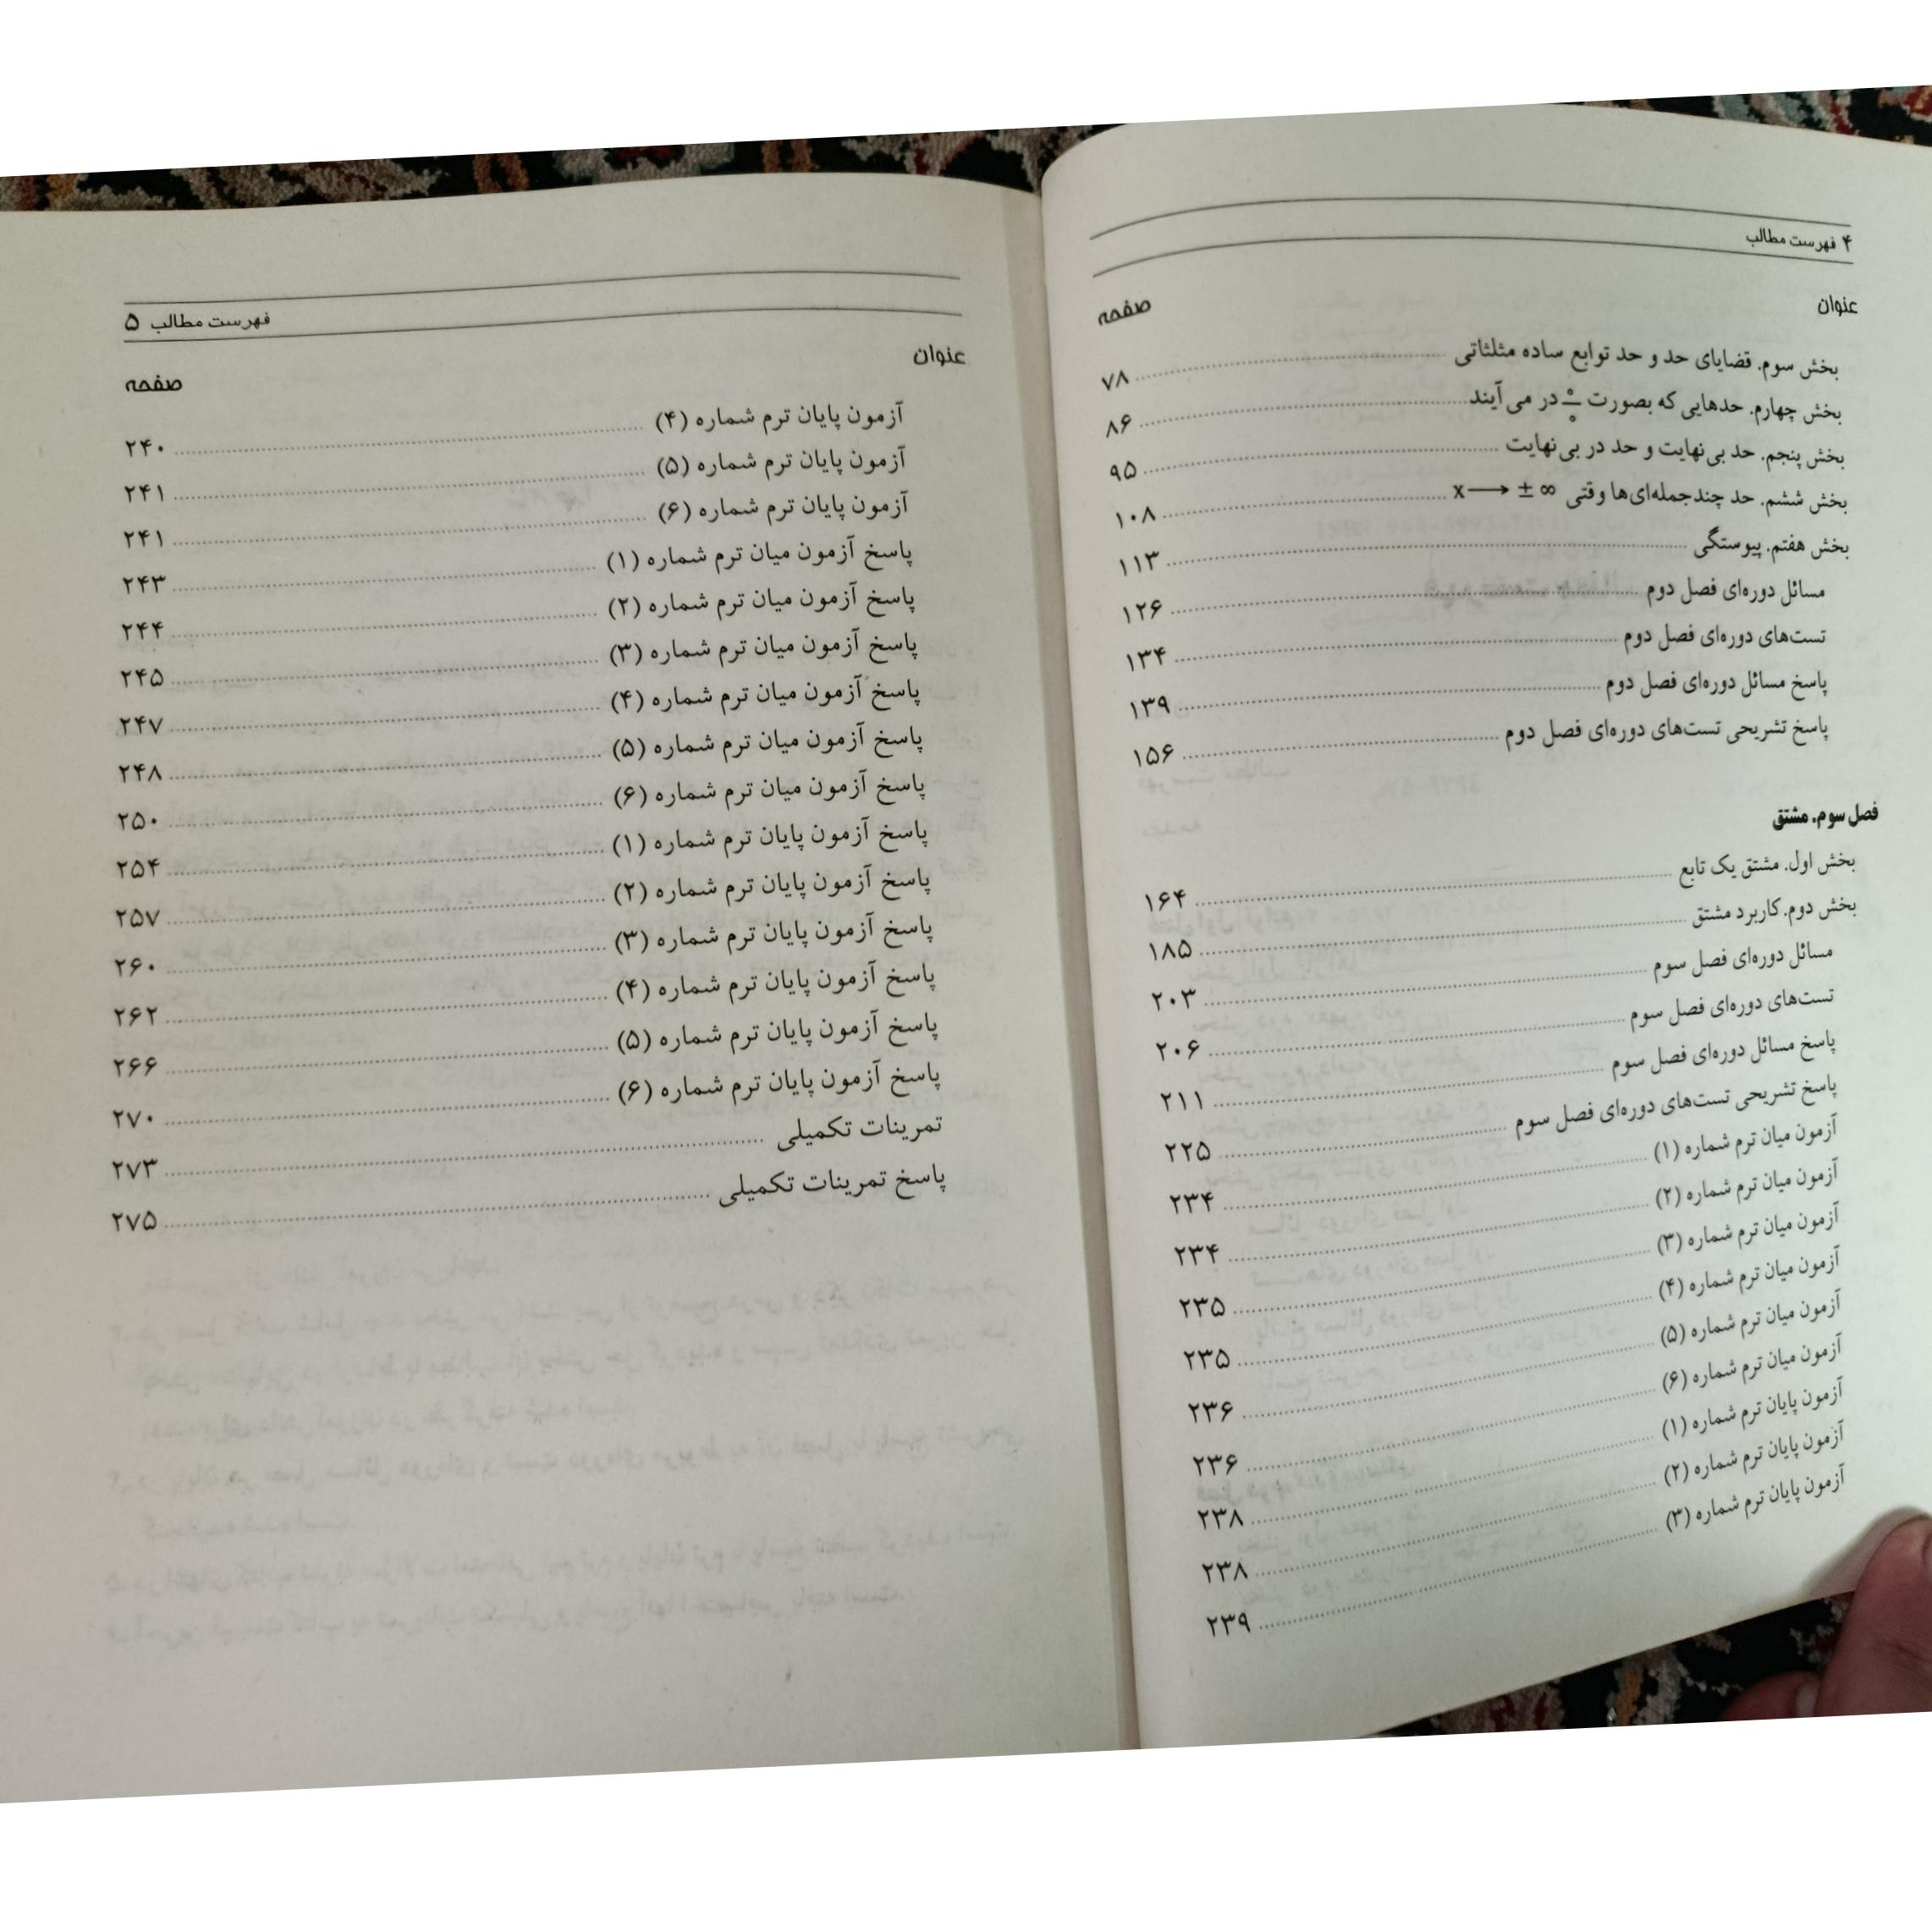 ۴ فهرست مطالب
عنوان صفحه
بخش سوم. قضایای حد و حد توابع ساده مثلثاتی ........ ۷۸
بخش چهارم. حدهایی که بصورت ۰/۰ در می‌آیند ........ ۸۶
بخش پنجم. حد بی‌نهایت و حد در بی‌نهایت ........ ۹۵
بخش ششم. حد چندجمله‌ای‌ها وقتی x ⟶ ± ∞ ........ ۱۰۸
بخش هفتم. پیوستگی ........ ۱۱۳
مسائل دوره‌ای فصل دوم ........ ۱۲۶
تست‌های دوره‌ای فصل دوم ........ ۱۳۴
پاسخ مسائل دوره‌ای فصل دوم ........ ۱۳۹
پاسخ تشریحی تست‌های دوره‌ای فصل دوم ........ ۱۵۶
فصل سوم. مشتق
بخش اول. مشتق یک تابع ........ ۱۶۴
بخش دوم. کاربرد مشتق ........ ۱۸۵
مسائل دوره‌ای فصل سوم ........ ۲۰۳
تست‌های دوره‌ای فصل سوم ........ ۲۰۶
پاسخ مسائل دوره‌ای فصل سوم ........ ۲۱۱
پاسخ تشریحی تست‌های دوره‌ای فصل سوم ........ ۲۲۵
آزمون میان ترم شماره (۱) ........ ۲۳۴
آزمون میان ترم شماره (۲) ........ ۲۳۴
آزمون میان ترم شماره (۳) ........ ۲۳۵
آزمون میان ترم شماره (۴) ........ ۲۳۵
آزمون میان ترم شماره (۵) ........ ۲۳۶
آزمون میان ترم شماره (۶) ........ ۲۳۶
آزمون پایان ترم شماره (۱) ........ ۲۳۸
آزمون پایان ترم شماره (۲) ........ ۲۳۸
آزمون پایان ترم شماره (۳) ........ ۲۳۹
فهرست مطالب ۵
عنوان صفحه
آزمون پایان ترم شماره (۴) ........ ۲۴۰
آزمون پایان ترم شماره (۵) ........ ۲۴۱
آزمون پایان ترم شماره (۶) ........ ۲۴۱
پاسخ آزمون میان ترم شماره (۱) ........ ۲۴۳
پاسخ آزمون میان ترم شماره (۲) ........ ۲۴۴
پاسخ آزمون میان ترم شماره (۳) ........ ۲۴۵
پاسخ آزمون میان ترم شماره (۴) ........ ۲۴۷
پاسخ آزمون میان ترم شماره (۵) ........ ۲۴۸
پاسخ آزمون میان ترم شماره (۶) ........ ۲۵۰
پاسخ آزمون پایان ترم شماره (۱) ........ ۲۵۴
پاسخ آزمون پایان ترم شماره (۲) ........ ۲۵۷
پاسخ آزمون پایان ترم شماره (۳) ........ ۲۶۰
پاسخ آزمون پایان ترم شماره (۴) ........ ۲۶۲
پاسخ آزمون پایان ترم شماره (۵) ........ ۲۶۶
پاسخ آزمون پایان ترم شماره (۶) ........ ۲۷۰
تمرینات تکمیلی ........ ۲۷۳
پاسخ تمرینات تکمیلی ........ ۲۷۵